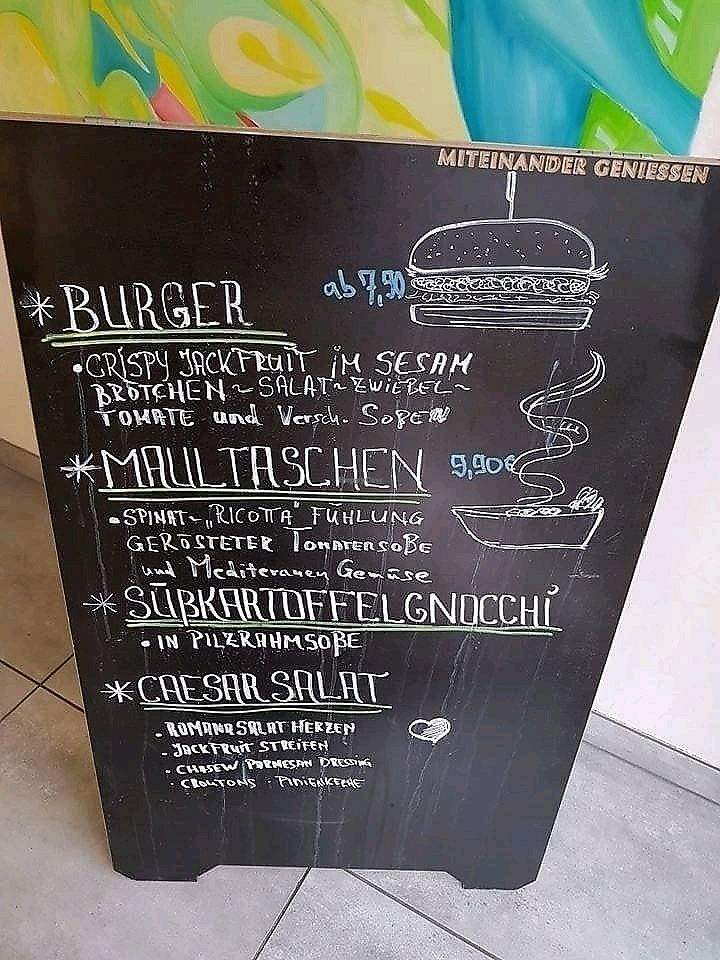 MITEINANDER GENIESSEN
* BURGER ab 7,90
• CRISPY JACKFRUIT IM SESAM
BRÖTCHEN ~ SALAT ~ ZWIEBEL ~
TOMATE und Versch. Soßen
* MAULTASCHEN 9,90€
• SPINAT ~ „RICOTTA" FÜHLUNG
GERÖSTETER TOMATENSOßE
und Mediteranen Gemüse
* SÜßKARTOFFELGNOCCHI
• IN PILZRAHMSOßE
* CAESAR SALAT
• ROMANA SALAT HERZEN
• JACKFRUIT STREIFEN
• CHASEW PARMESAN DRESSING
• CROUTONS • PINIENKERNE